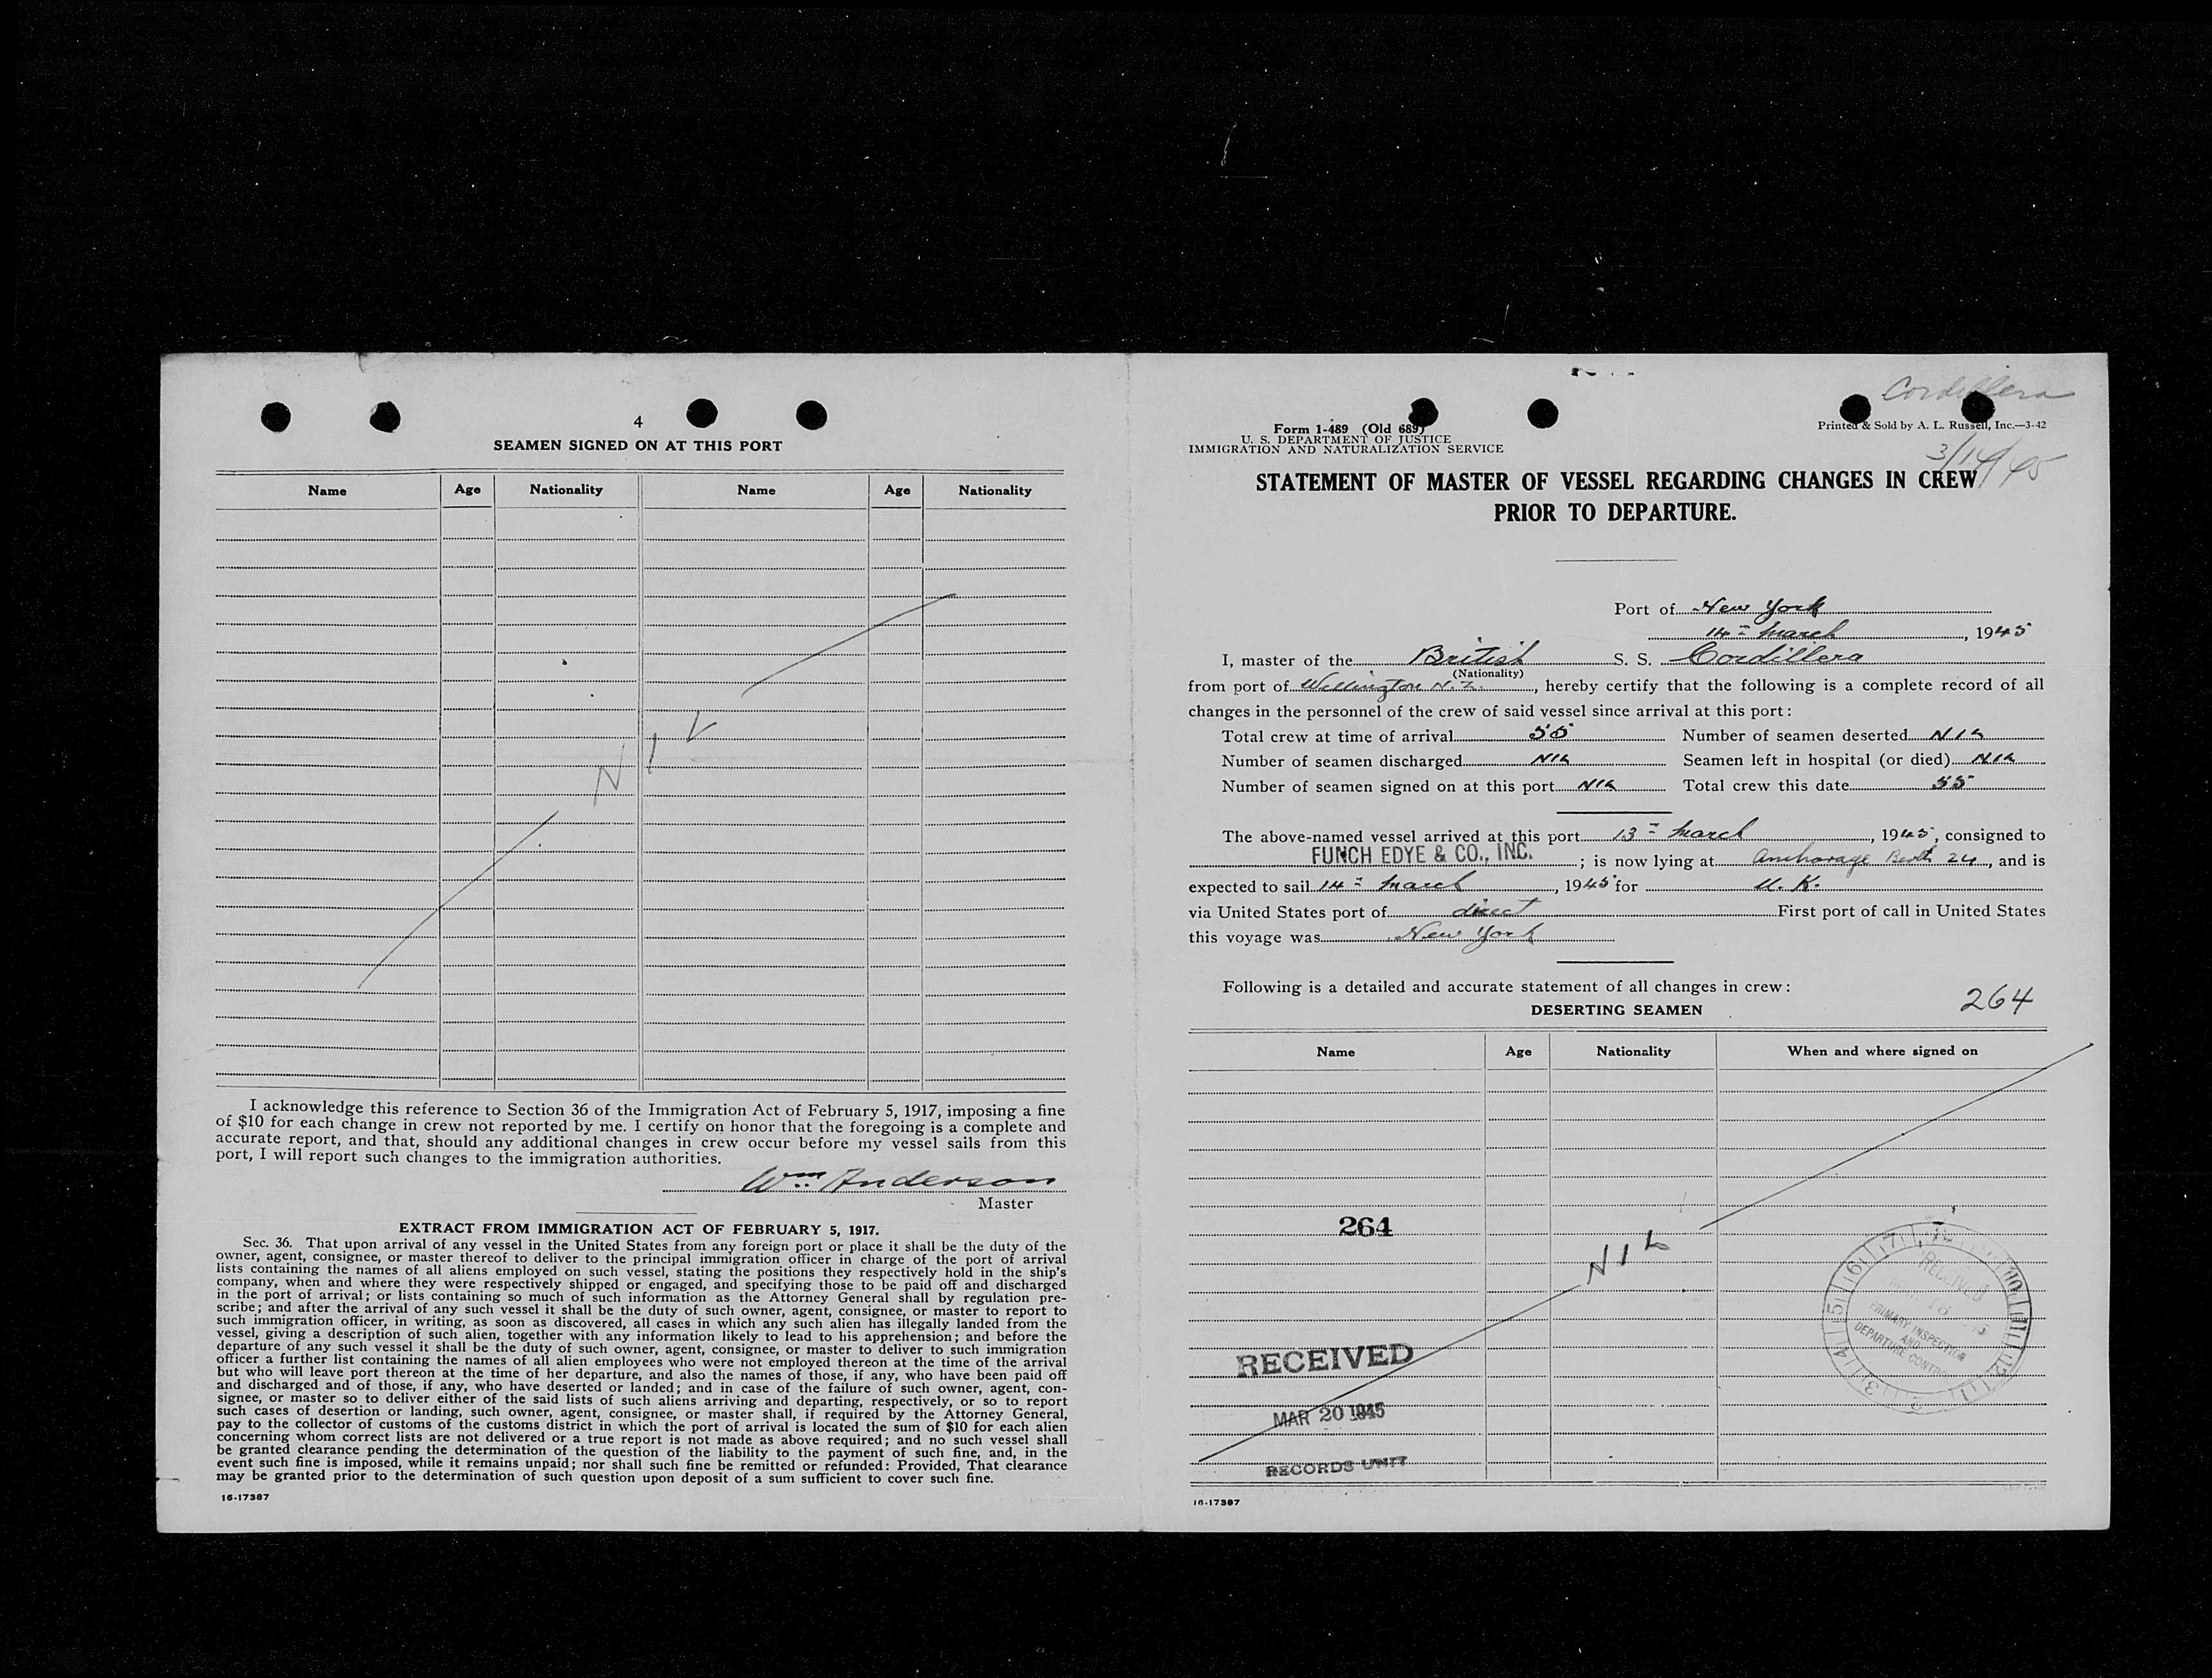 4
SEAMEN SIGNED ON AT THIS PORT
Name Age Nationality Name Age Nationality
NIL
I acknowledge this reference to Section 36 of the Immigration Act of February 5, 1917, imposing a fine
of $10 for each change in crew not reported by me. I certify on honor that the foregoing is a complete and
accurate report, and that, should any additional changes in crew occur before my vessel sails from this
port, I will report such changes to the immigration authorities.
Wm Anderson
Master
EXTRACT FROM IMMIGRATION ACT OF FEBRUARY 5, 1917.
Sec. 36. That upon arrival of any vessel in the United States from any foreign port or place it shall be the duty of the
owner, agent, consignee, or master thereof to deliver to the principal immigration officer in charge of the port of arrival
lists containing the names of all aliens employed on such vessel, stating the positions they respectively hold in the ship's
company, when and where they were respectively shipped or engaged, and specifying those to be paid off and discharged
in the port of arrival; or lists containing so much of such information as the Attorney General shall by regulation pre-
scribe; and after the arrival of any such vessel it shall be the duty of such owner, agent, consignee, or master to report to
such immigration officer, in writing, as soon as discovered, all cases in which any such alien has illegally landed from the
vessel, giving a description of such alien, together with any information likely to lead to his apprehension; and before the
departure of any such vessel it shall be the duty of such owner, agent, consignee, or master to deliver to such immigration
officer a further list containing the names of all alien employees who were not employed thereon at the time of the arrival
but who will leave port thereon at the time of her departure, and also the names of those, if any, who have been paid off
and discharged and of those, if any, who have deserted or landed; and in case of the failure of such owner, agent, con-
signee, or master so to deliver either of the said lists of such aliens arriving and departing, respectively, or so to report
such cases of desertion or landing, such owner, agent, consignee, or master shall, if required by the Attorney General,
pay to the collector of customs of the customs district in which the port of arrival is located the sum of $10 for each alien
concerning whom correct lists are not delivered or a true report is not made as above required; and no such vessel shall
be granted clearance pending the determination of the question of the liability to the payment of such fine, and, in the
event such fine is imposed, while it remains unpaid; nor shall such fine be remitted or refunded: Provided, That clearance
may be granted prior to the determination of such question upon deposit of a sum sufficient to cover such fine.
16-17387
Cordillera
Form 1-489 (Old 689)
U. S. DEPARTMENT OF JUSTICE
IMMIGRATION AND NATURALIZATION SERVICE
Printed & Sold by A. L. Russell, Inc.—3-42
3/14/45
STATEMENT OF MASTER OF VESSEL REGARDING CHANGES IN CREW
PRIOR TO DEPARTURE.
Port of New York
14th March, 1945
I, master of the British S. S. Cordillera
(Nationality)
from port of Wellington N.Z., hereby certify that the following is a complete record of all
changes in the personnel of the crew of said vessel since arrival at this port:
Total crew at time of arrival 55 Number of seamen deserted NIL
Number of seamen discharged NIL Seamen left in hospital (or died) NIL
Number of seamen signed on at this port NIL Total crew this date 55
The above-named vessel arrived at this port 13th March, 1945, consigned to
FUNCH EDYE & CO., INC.; is now lying at Anchorage Berth 24, and is
expected to sail 14th March, 1945 for U. K.
via United States port of direct First port of call in United States
this voyage was New York
Following is a detailed and accurate statement of all changes in crew:
264
DESERTING SEAMEN
Name Age Nationality When and where signed on
264
NIL
RECEIVED
MAR 20 1945
RECORDS UNIT
RECEIVED
PRIMARY INSPECTION
AND
DEPARTURE CONTROL
16-17387